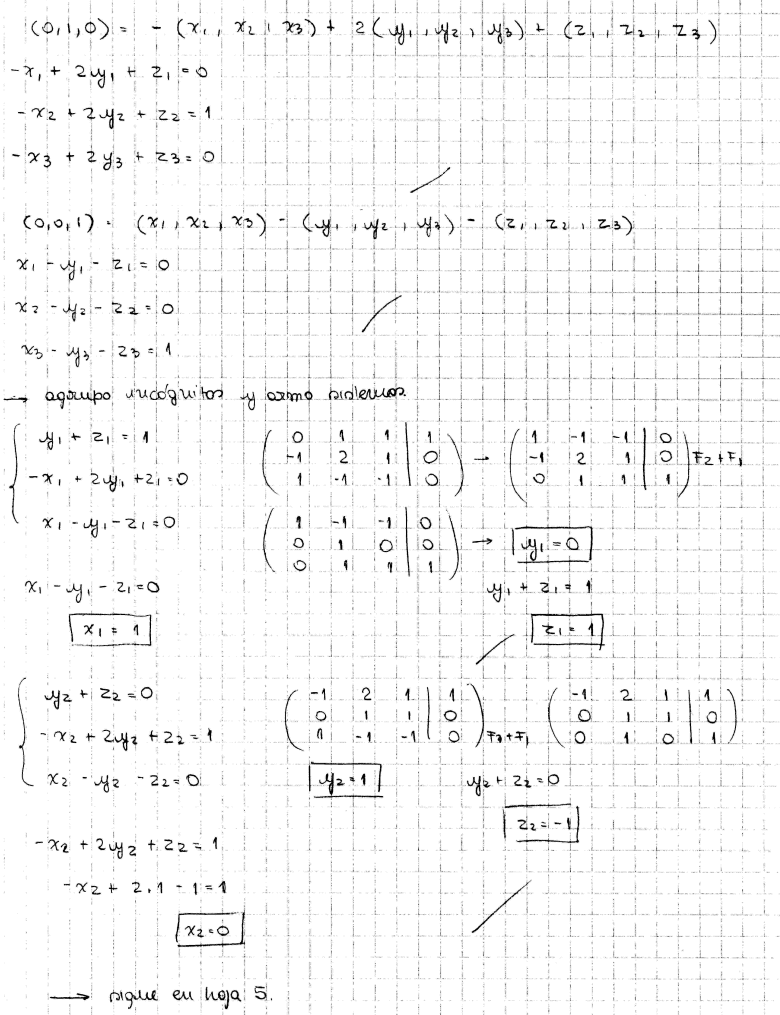 (0,1,0) = - (x₁, x₂, x₃) + 2(y₁, y₂, y₃) + (z₁, z₂, z₃)
-x₁ + 2y₁ + z₁ = 0
-x₂ + 2y₂ + z₂ = 1
-x₃ + 2y₃ + z₃ = 0
(0,0,1) = (x₁, x₂, x₃) - (y₁, y₂, y₃) - (z₁, z₂, z₃)
x₁ - y₁ - z₁ = 0
x₂ - y₂ - z₂ = 0
x₃ - y₃ - z₃ = 1
→ agrupo incógnitas y armo sistemas.
y₁ + z₁ = 1
-x₁ + 2y₁ + z₁ = 0
x₁ - y₁ - z₁ = 0
0 1 1 | 1
-1 2 1 | 0
1 -1 -1 | 0
→
1 -1 -1 | 0
-1 2 1 | 0 F₂+F₁
0 1 1 | 1
1 -1 -1 | 0
0 1 0 | 0
0 1 1 | 1
→ y₁ = 0
y₁ + z₁ = 1
z₁ = 1
x₁ - y₁ - z₁ = 0
x₁ = 1
y₂ + z₂ = 0
-x₂ + 2y₂ + z₂ = 1
x₂ - y₂ - z₂ = 0
-1 2 1 | 1
0 1 1 | 0
1 -1 -1 | 0 F₃+F₁
-1 2 1 | 1
0 1 1 | 0
0 1 0 | 1
y₂ = 1
y₂ + z₂ = 0
z₂ = -1
-x₂ + 2y₂ + z₂ = 1
-x₂ + 2.1 - 1 = 1
x₂ = 0
→ sigue en hoja 5.